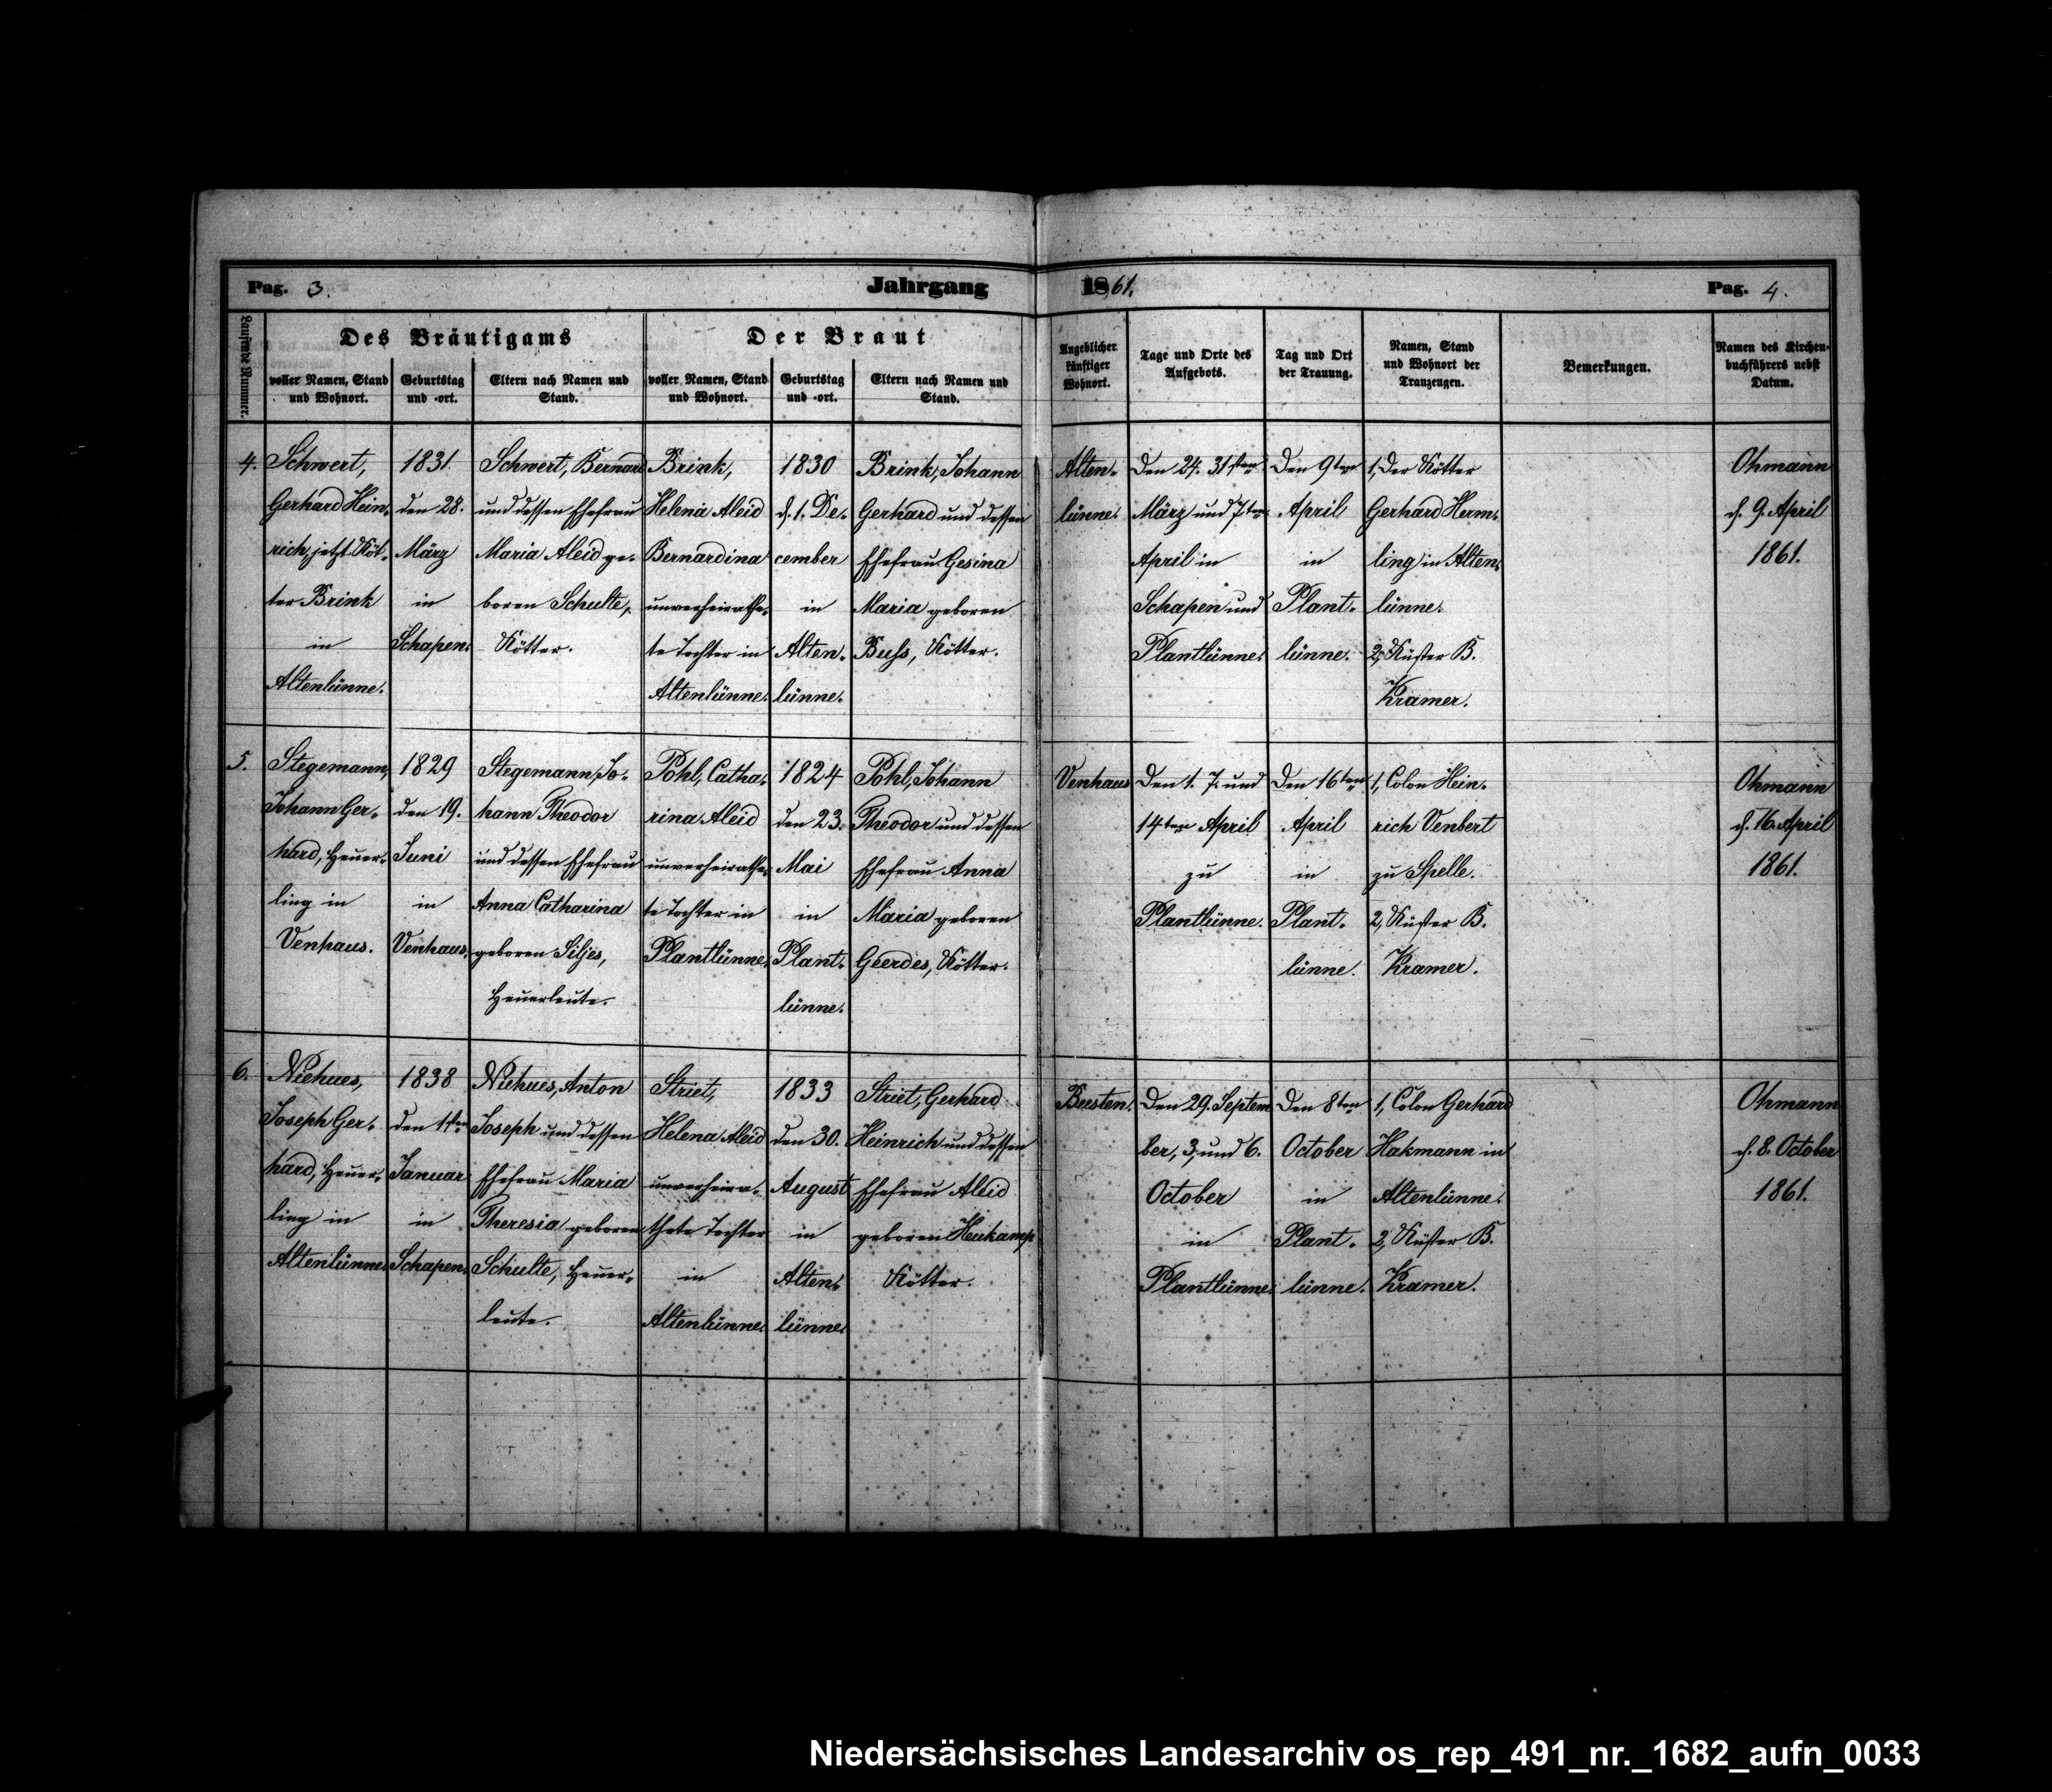 Pag. 3.
Jahrgang 1861.
Pag. 4.
Laufende Nummer.
Des Bräutigams
voller Namen, Stand
und Wohnort.
Geburtstag
und -ort.
Eltern nach Namen und
Stand.
Der Braut
voller Namen, Stand
und Wohnort.
Geburtstag
und -ort.
Eltern nach Namen und
Stand.
Angeblicher
künftiger
Wohnort.
Tage und Orte des
Aufgebots.
Tag und Ort
der Trauung.
Namen, Stand
und Wohnort der
Trauzeugen.
Bemerkungen.
Namen des Kirchen-
buchführers nebst
Datum.
4.
Schwert,
Gerhard Hein-
rich, jetzt Köt-
ter Brink
in
Altenlünne.
1831
den 28.
März
in
Schapen.
Schwert, Bernard
und dessen Ehefrau
Maria Aleid ge-
boren Schulte,
Kötter.
Brink,
Helena Aleid
Bernardina
unverheirathe-
te Tochter in
Altenlünne.
1830
d. 1. De-
cember
in
Alten-
lünne.
Brink, Johann
Gerhard und dessen
Ehefrau Gesina
Maria geboren
Buss, Kötter.
Alten-
lünne.
Den 24. 31sten
März und 7ten
April in
Schapen und
Plantlünne.
Den 9ten
April
in
Plant-
lünne.
1, Der Kötter
Gerhard Herm-
ling in Alten-
lünne.
2, Küster B.
Kramer.
Ohmann
d. 9. April
1861.
5.
Stegemann,
Johann Ger-
hard, Heuer-
ling in
Venhaus.
1829
den 19.
Juni
in
Venhaus.
Stegemann, Jo-
hann Theodor
und dessen Ehefrau
Anna Catharina
geboren Siljes,
Heuerleute.
Pohl, Catha-
rina Aleid
unverheirathe-
te Tochter in
Plantlünne.
1824
den 23.
Mai
in
Plant-
lünne.
Pohl, Johann
Theodor und dessen
Ehefrau Anna
Maria geboren
Geerdes, Kötter.
Venhaus
Den 1. 7. und
14ten April
zu
Plantlünne.
Den 16ten
April
in
Plant-
lünne.
1, Colon Hein-
rich Venbert
zu Spelle.
2, Küster B.
Kramer.
Ohmann
d. 16. April
1861.
6.
Niehues,
Joseph Ger-
hard, Heuer-
ling in
Altenlünne.
1838
den 1sten
Januar
in
Schapen.
Niehues, Anton
Joseph und dessen
Ehefrau Maria
Theresia geboren
Schulte, Heuer-
leute.
Striet,
Helena Aleid
unverheira-
thete Tochter
in
Altenlünne.
1833
den 30.
August
in
Alten-
lünne.
Striet, Gerhard
Heinrich und dessen
Ehefrau Aleid
geboren Heukamp
Kötter.
Beesten.
Den 29. Septem
ber, 3, und 6.
October
in
Plantlünne.
Den 8ten
October
in
Plant-
lünne.
1, Colon Gerhard
Hakmann in
Altenlünne.
2, Küster B.
Kramer.
Ohmann
d. 8. October
1861.
Niedersächsisches Landesarchiv os_rep_491_nr._1682_aufn_0033